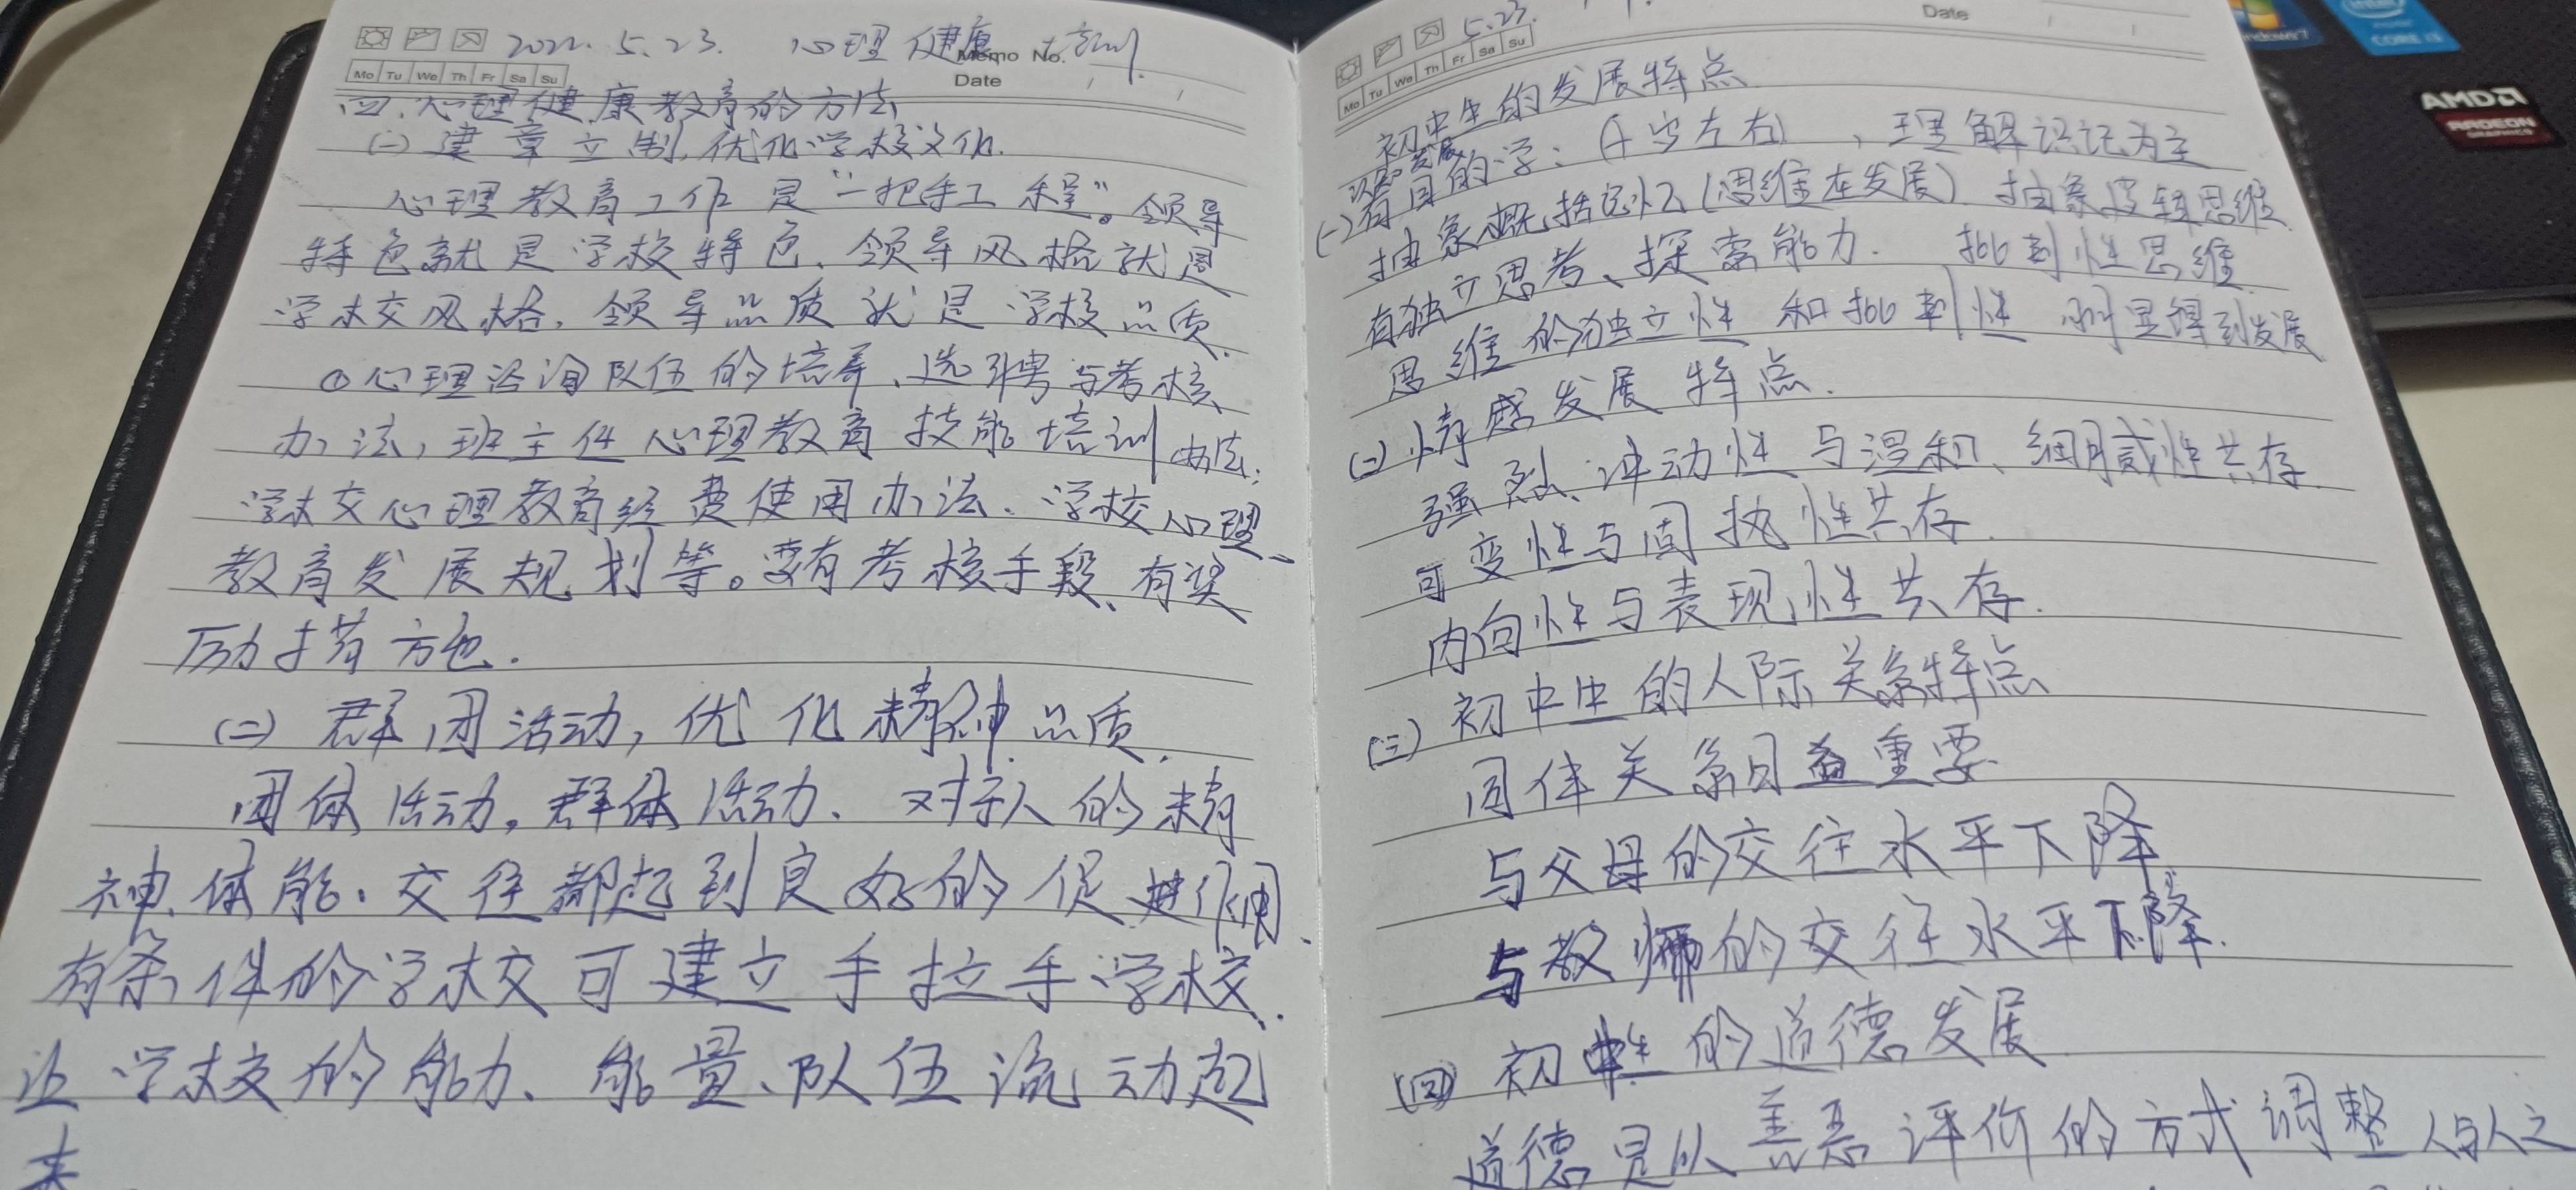 2022. 5.23. 心理健康培训
Memo No.
Mo Tu We Th Fr Sa Su
Date
四、心理健康教育的方法
(一) 建章立制,优化学校文化.
心理教育工作是“一把手工程”。领导
特色就是学校特色、领导风格就是
学校风格、领导品质就是学校品质.
①心理咨询队伍的培养、选聘与考核
办法,班主任心理教育技能培训办法;
学校心理教育经费使用办法、学校心理
教育发展规划等。要有考核手段、有奖
励措施.
(二) 群团活动,优化精神品质.
团体活动,群体活动、对学人的精
神、体能、交往都起到良好的促进作用.
有条件的学校可建立手拉手学校.
让学校的能力、能量、队伍流动起
来
5.23.
Date
Mo Tu We Th Fr Sa Su
初中生的发展特点
认知发展
(一)有目的学:(十岁左右),理解识记为主
抽象概括记忆(思维在发展) 抽象逻辑思维
有独立思考、探索能力. 批判性思维
思维的独立性和批判性明显得到发展
(二)情感发展特点.
强烈、冲动性与温和、细腻性共存.
可变性与固执性共存.
内向性与表现性共存.
(三)初中生的人际关系特点
同伴关系日益重要
与父母的交往水平下降
与教师的交往水平下降.
(四)初中生的道德发展
道德是以善恶评价的方式调整人与人之
intel
CORE i3
Windows 7
AMD
RADEON
GRAPHICS